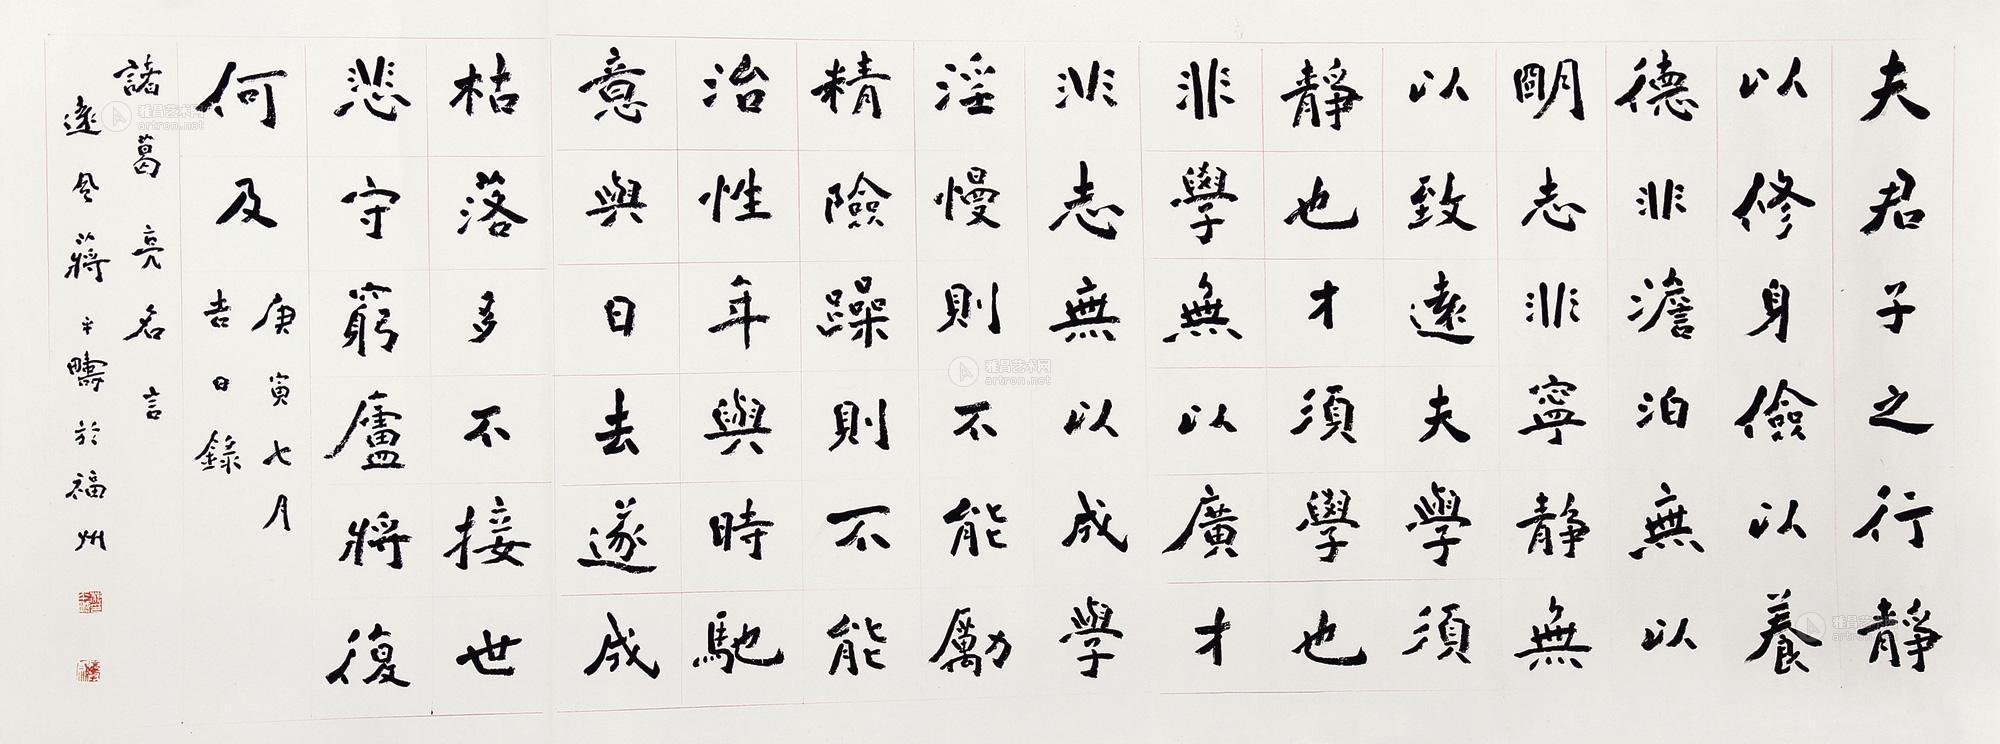 夫君子之行靜
以修身儉以養
德非澹泊無以
明志非寧靜無
以致遠夫學須
靜也才須學也
非學無以廣才
非志無以成學
淫慢則不能勵
精險躁則不能
治性年與時馳
意與日去遂成
枯落多不接世
悲守窮廬將復
何及
庚寅七月
吉日錄
諸葛亮名言
遠風蔣平疇於福州
雅昌艺术网
artron.net
雅昌艺术网
artron.net
雅昌艺术网
artron.net